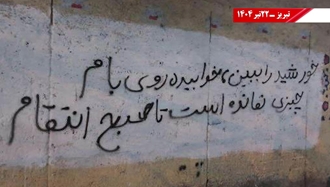 تبریز ــ ۲۲ تیر ۱۴۰۴
خورشید را ببین، خوابیده روی بام
چیزی نمانده است تا صبح انتقام